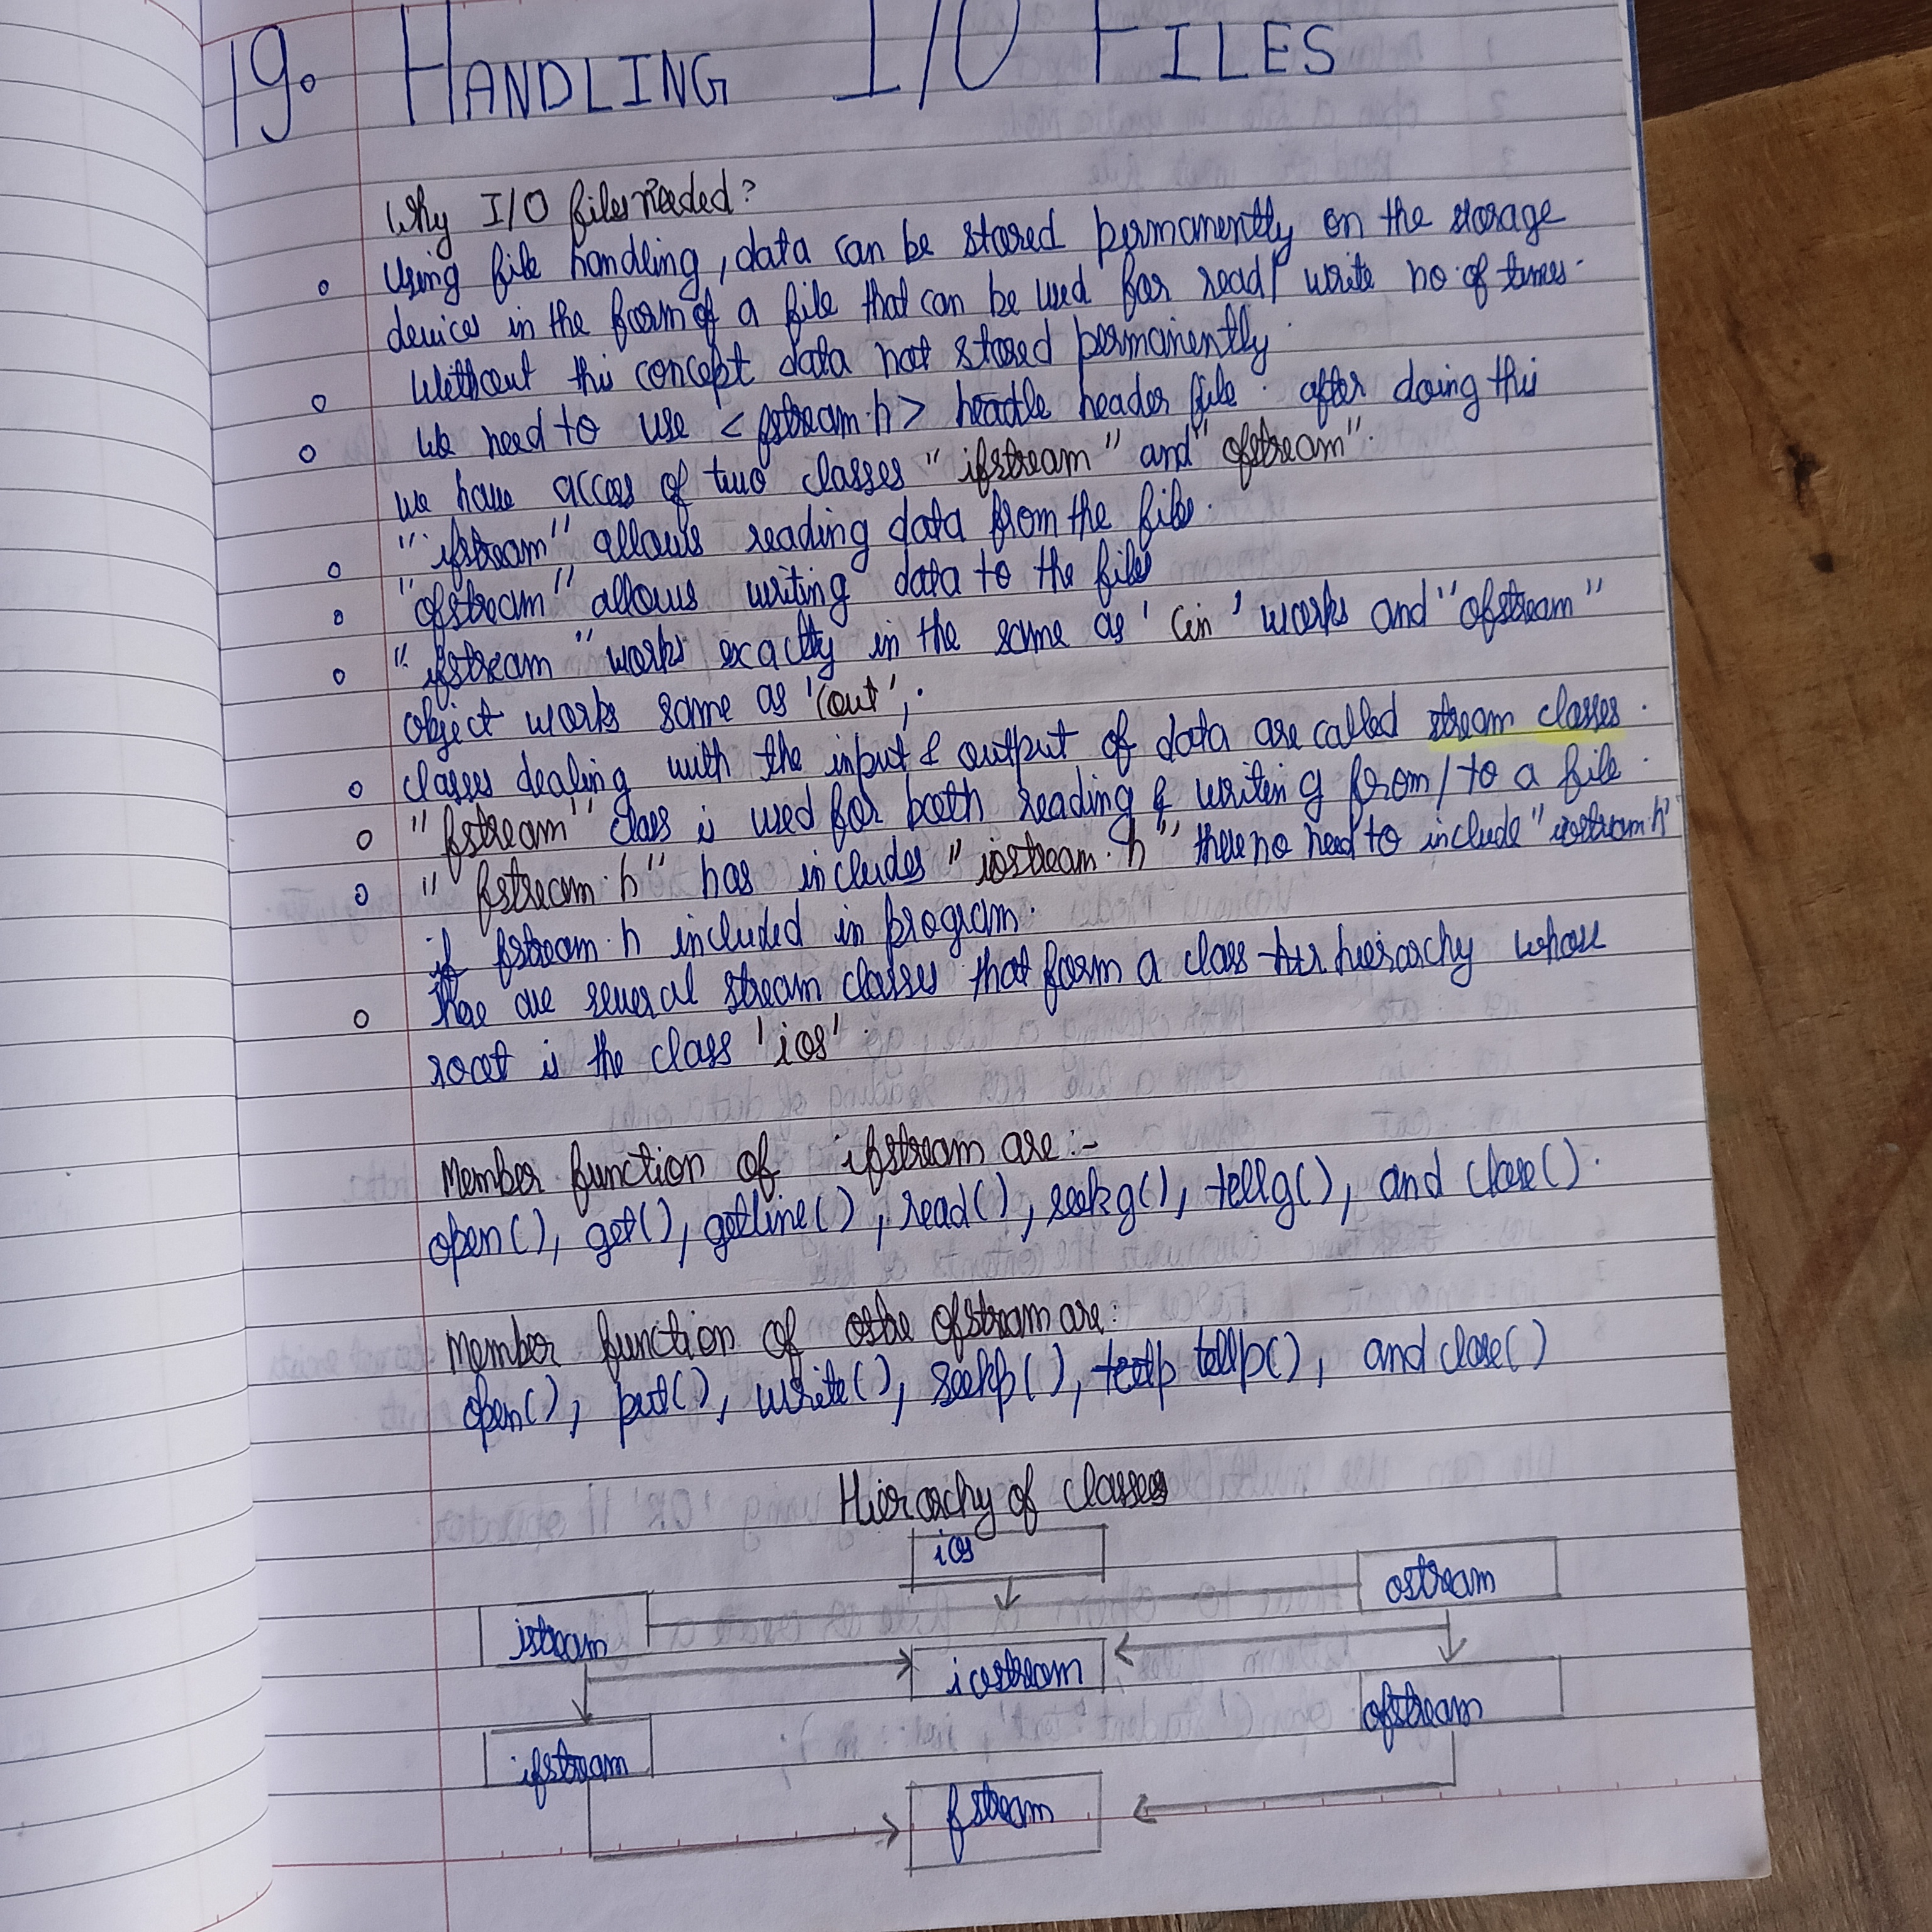 19. HANDLING I/O FILES
Why I/O files needed?
Using file handling, data can be stored permanently on the storage
devices in the form of a file that can be used for read/ write no. of times.
Without this concept data not stored permanently.
We need to use <fstream.h> header file. after doing this
we have acces of two classes "ifstream" and "ofstream".
"ifstream" allows reading data from the file.
"ofstream" allows writing data to the file
"ifstream" works exactly in the same as 'Cin' works and "ofstream"
object works same as 'Cout'.
classes dealing with the input & output of data are called stream classes.
"fstream" class is used for both reading & writing from/to a file.
"fstream.h" has includes "iostream.h" there no need to include "iostream.h"
if fstream.h included in program.
There are several stream classes that form a class hierarchy whose
root is the class 'ios'.
Member function of ifstream are:-
open(), get(), getline(), read(), seekg(), tellg(), and close().
Member function of ofstream are:
open(), put(), write(), seekp(), tellp(), and close()
Hierarchy of classes
ios
istream
ostream
iostream
ifstream
ofstream
fstream